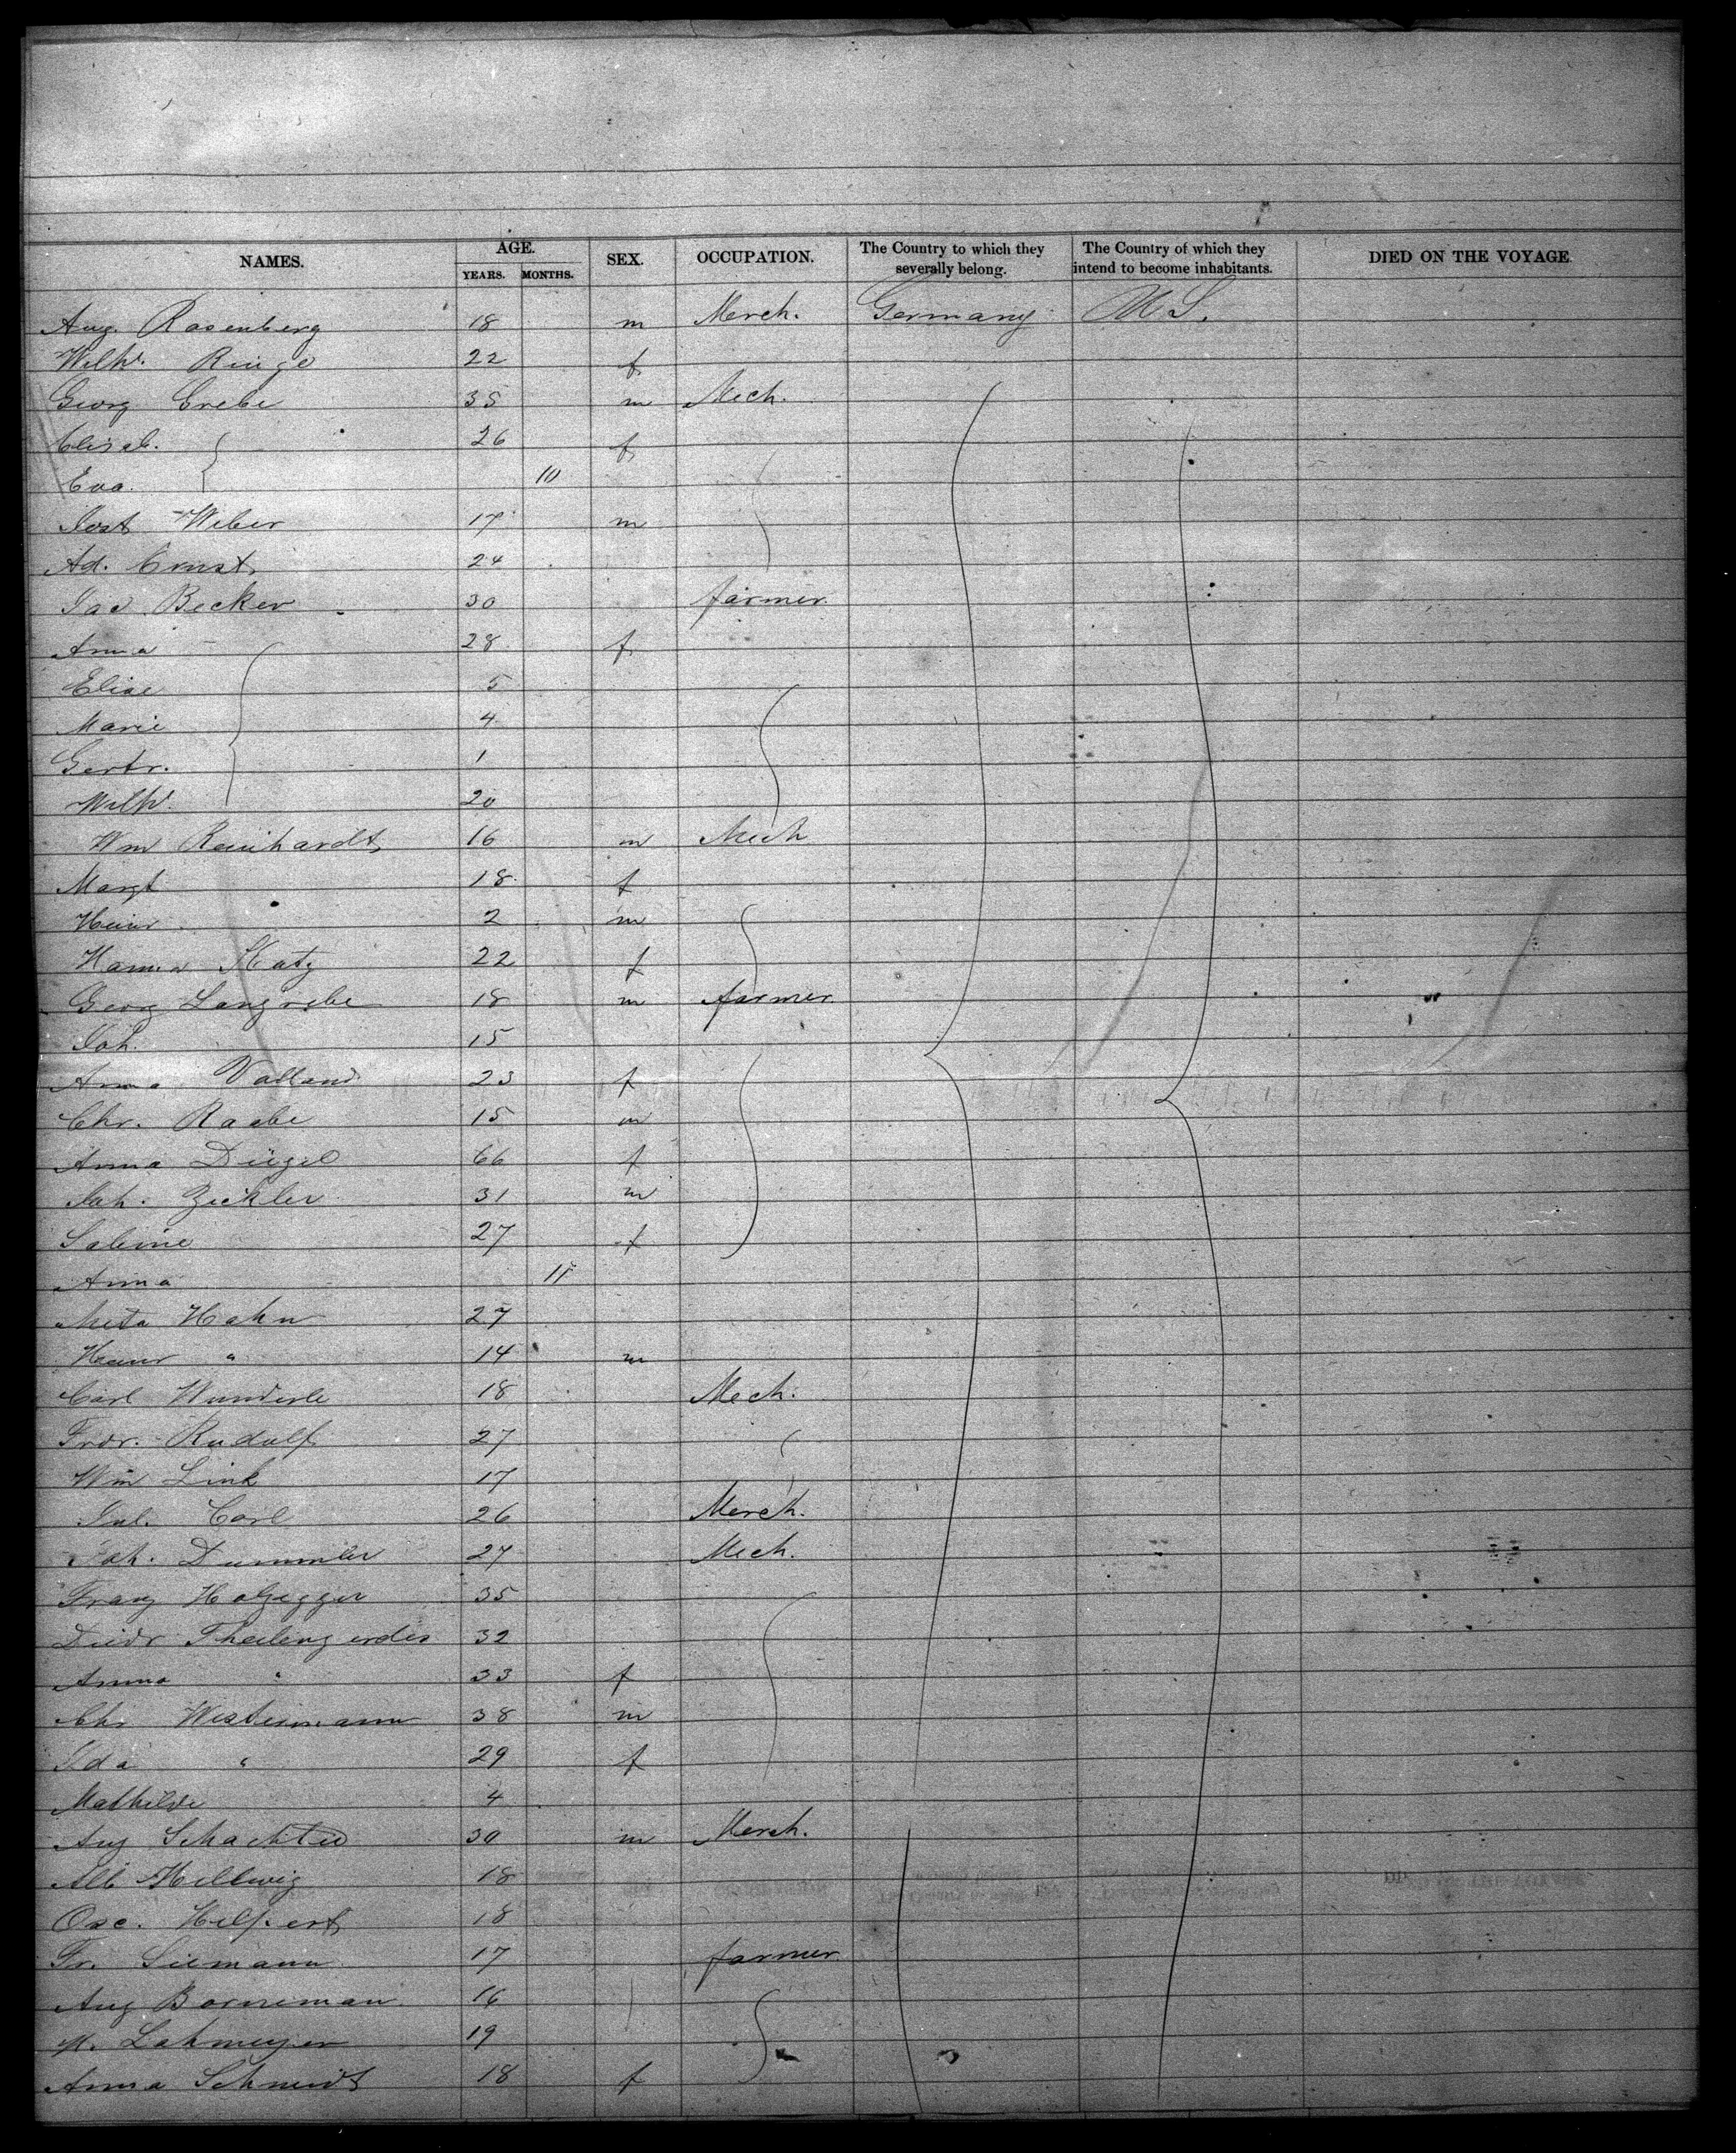 NAMES. AGE. SEX. OCCUPATION. The Country to which they severally belong. The Country of which they intend to become inhabitants. DIED ON THE VOYAGE.
YEARS. MONTHS.
Aug. Rosenberg 18 m Merch. Germany U S.
Wilh. Ringe 22 f
Georg Grebe 35 m Mech.
Elisab. 26 f
Eva. 10
Jost Weber 17 m
Ad. Ernst 24
Jac. Becker 30 farmer
Anna 28 f
Elise 5
Marie 4
Gertr. 1
Wilh. 20
Wm Reinhardt 16 m Mech
Margt 18 f
Heinr. 2 m
Hanna Katz 22 f
Georg Langrebe 18 m farmer
Joh. 15
Anna Volland 23 f
Chr. Raabe 15 m
Anna Diegel 66 f
Joh. Zickler 31 m
Sabine 27 f
Anna 11
Meta Hahn 27
Heinr " 14 m
Carl Wunderle 18 Mech.
Frdr. Rudolf 27
Wm Link 17
Jul. Carl 26 Merch.
Joh. Dummler 27 Mech.
Franz 35
Diedr 32
Anna " 33 f
Chr Westermann 38 m
Ida " 29 f
Mathilde 4
Aug 30 m Merch.
Alb Hellwig 18
Osc. Helpert 18
Fr. Siemann 17 farmer
Aug Borneman 16
H. Lahmeyer 19
Anna Schmidt 18 f